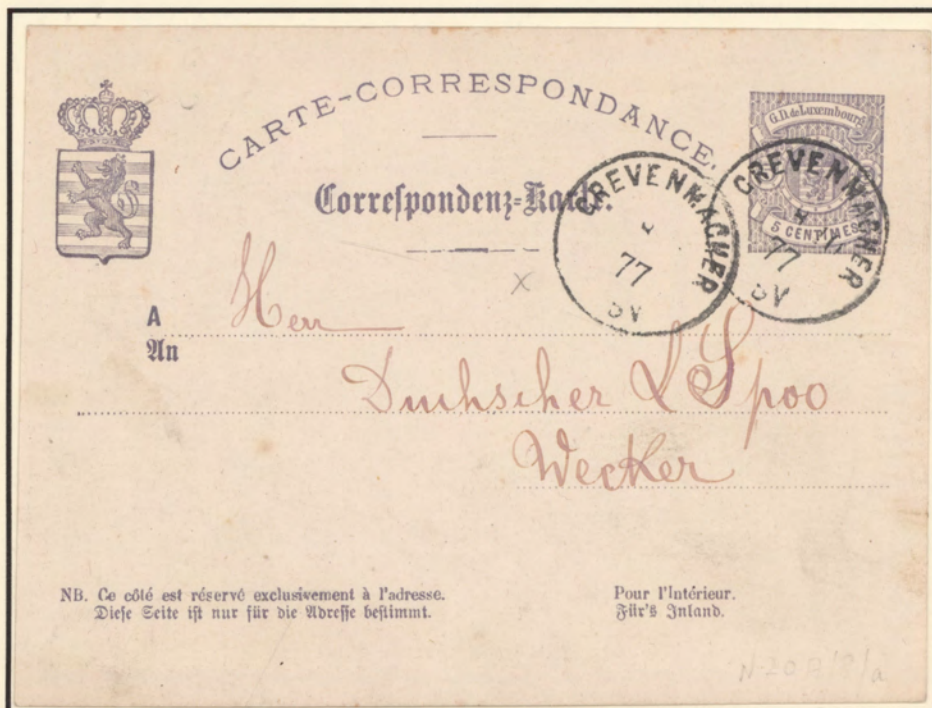 CARTE-CORRESPONDANCE.
Correspondenz-Karte.
G.D. de Luxembourg
5 CENTIMES
GREVENMACHER
77
GREVENMACHER
77
A
An
Herr
Duchscher & Spoo
Wecker
NB. Ce côté est réservé exclusivement à l'adresse.
Diese Seite ist nur für die Adresse bestimmt.
Pour l'Intérieur.
Für's Inland.